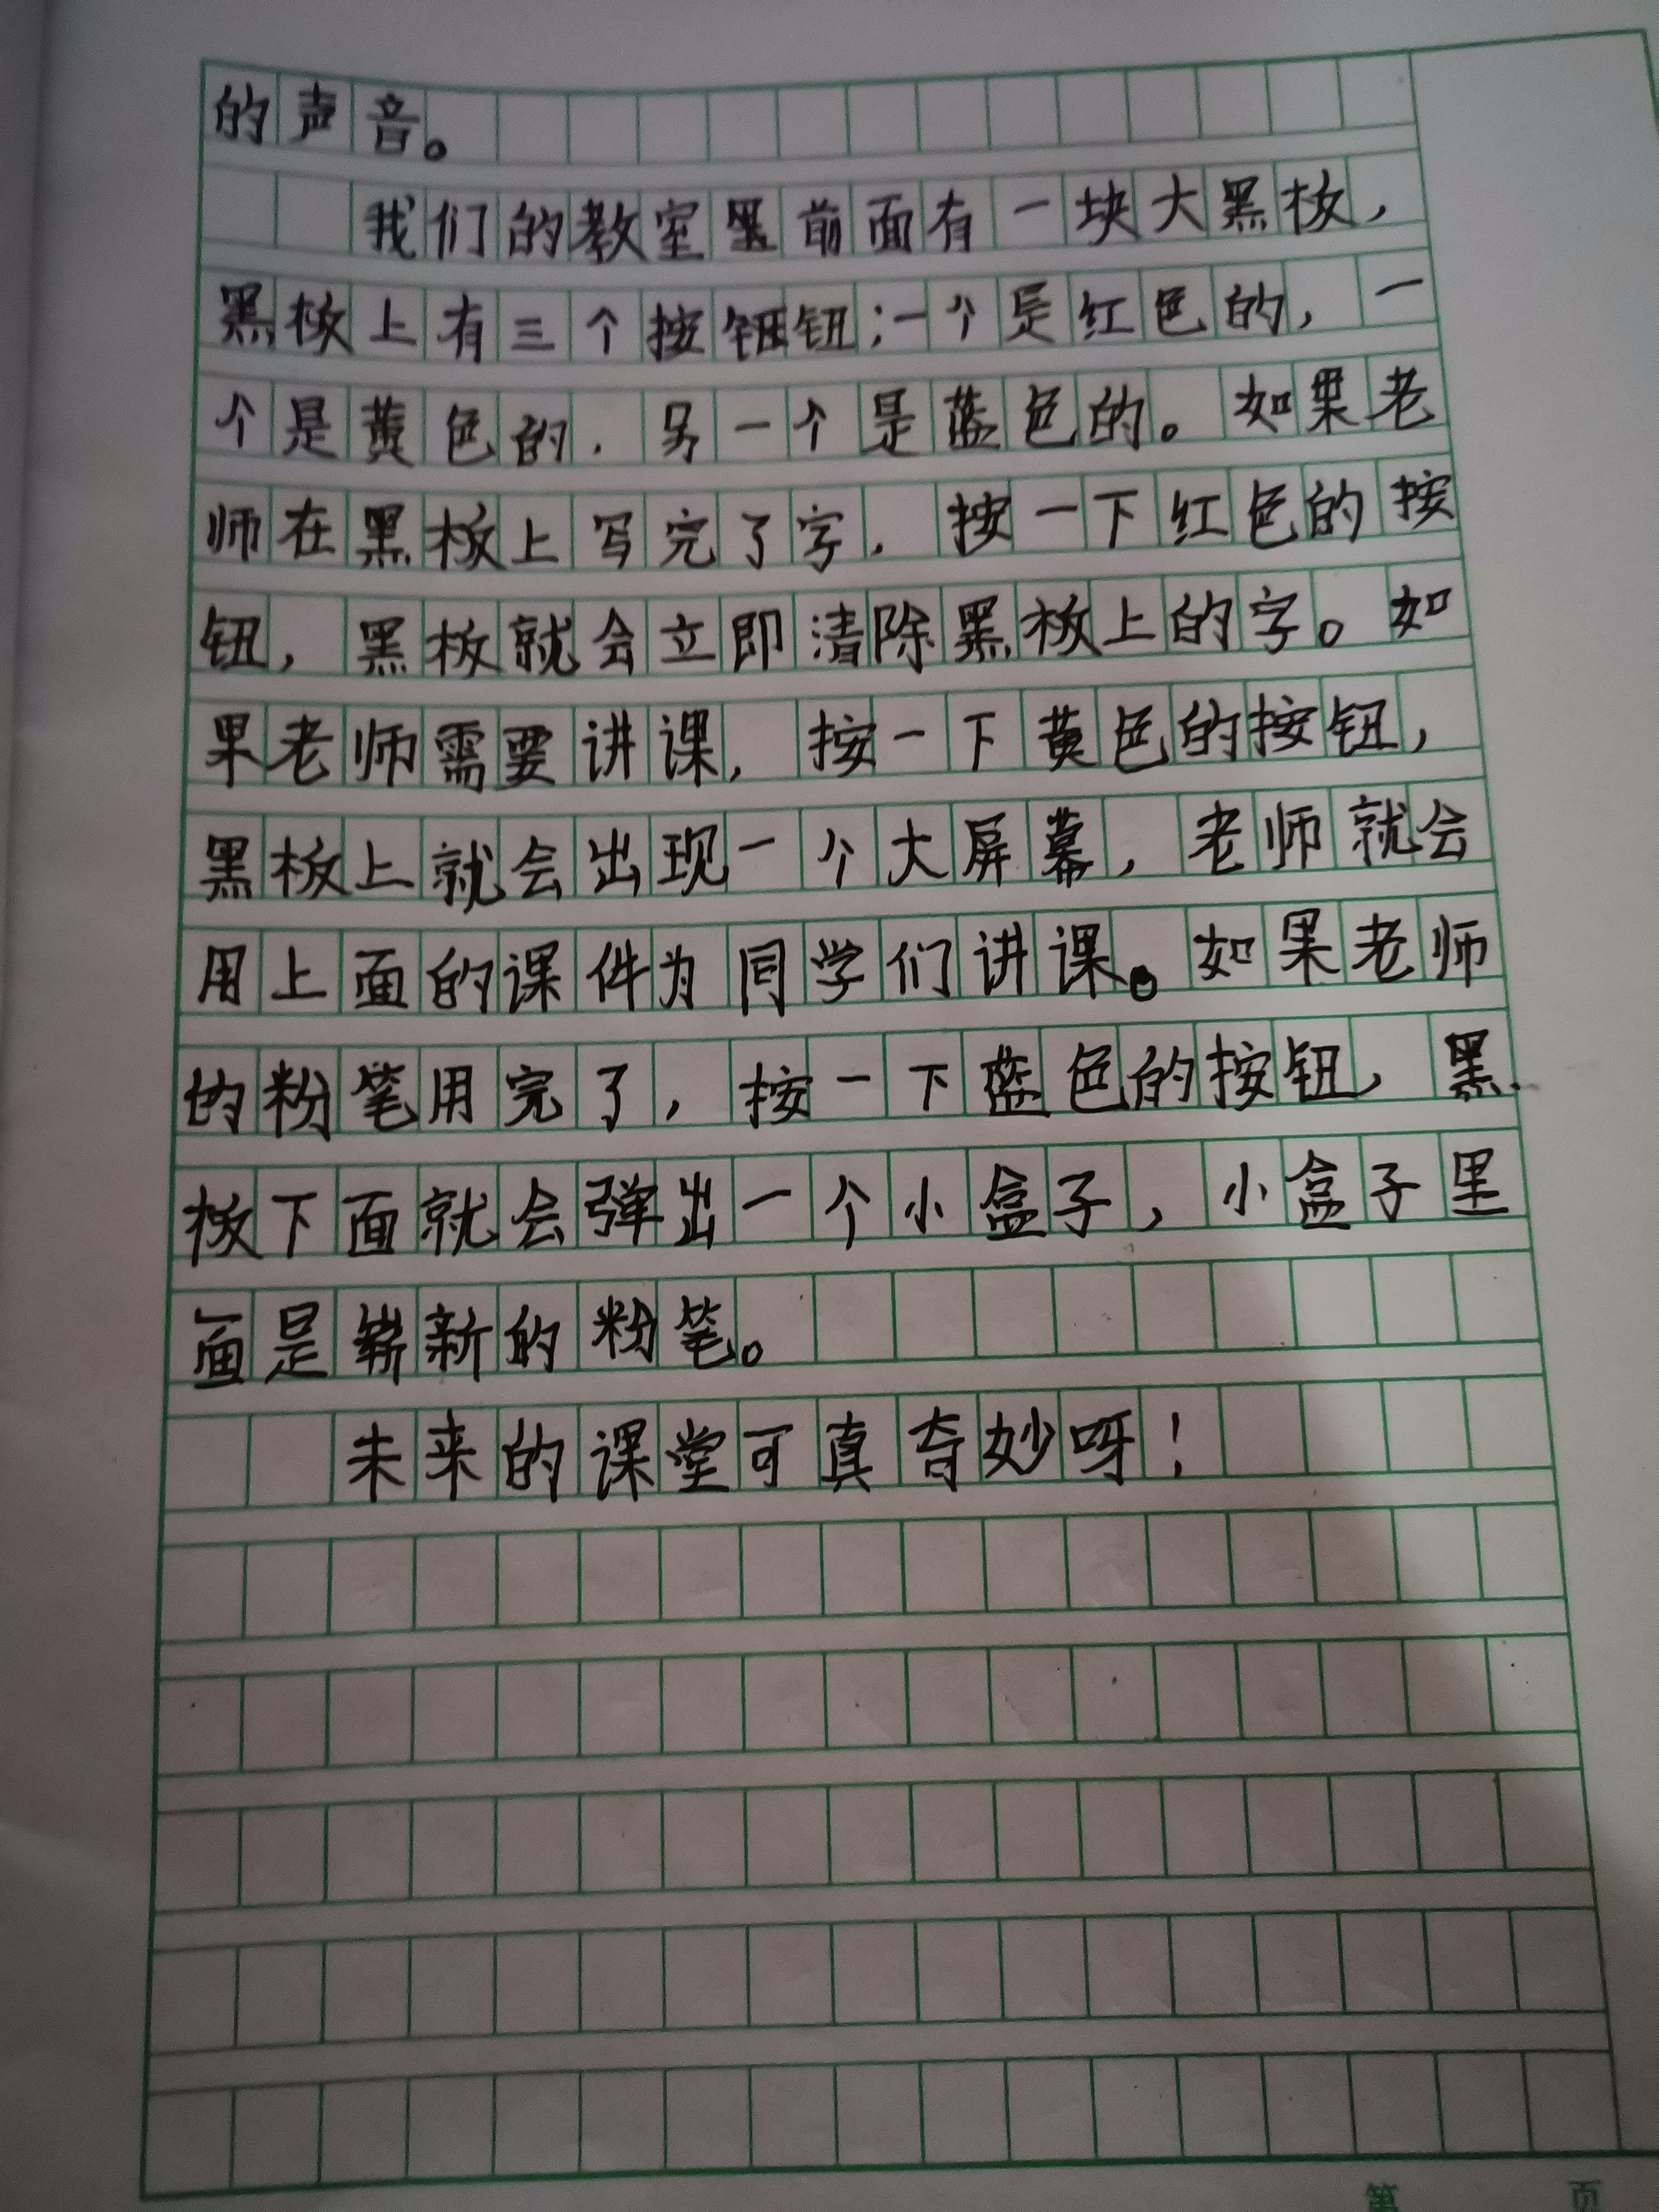 的声音。
我们的教室里前面有一块大黑板，
黑板上有三个按钮钮；一个是红色的，一
个是黄色的，另一个是蓝色的。如果老
师在黑板上写完了字，按一下红色的按
钮，黑板就会立即清除黑板上的字。如
果老师需要讲课，按一下黄色的按钮，
黑板上就会出现一个大屏幕，老师就会
用上面的课件为同学们讲课。如果老师
的粉笔用完了，按一下蓝色的按钮，黑
板下面就会弹出一个小盒子，小盒子里
面是崭新的粉笔。
未来的课堂可真奇妙呀！
第 页